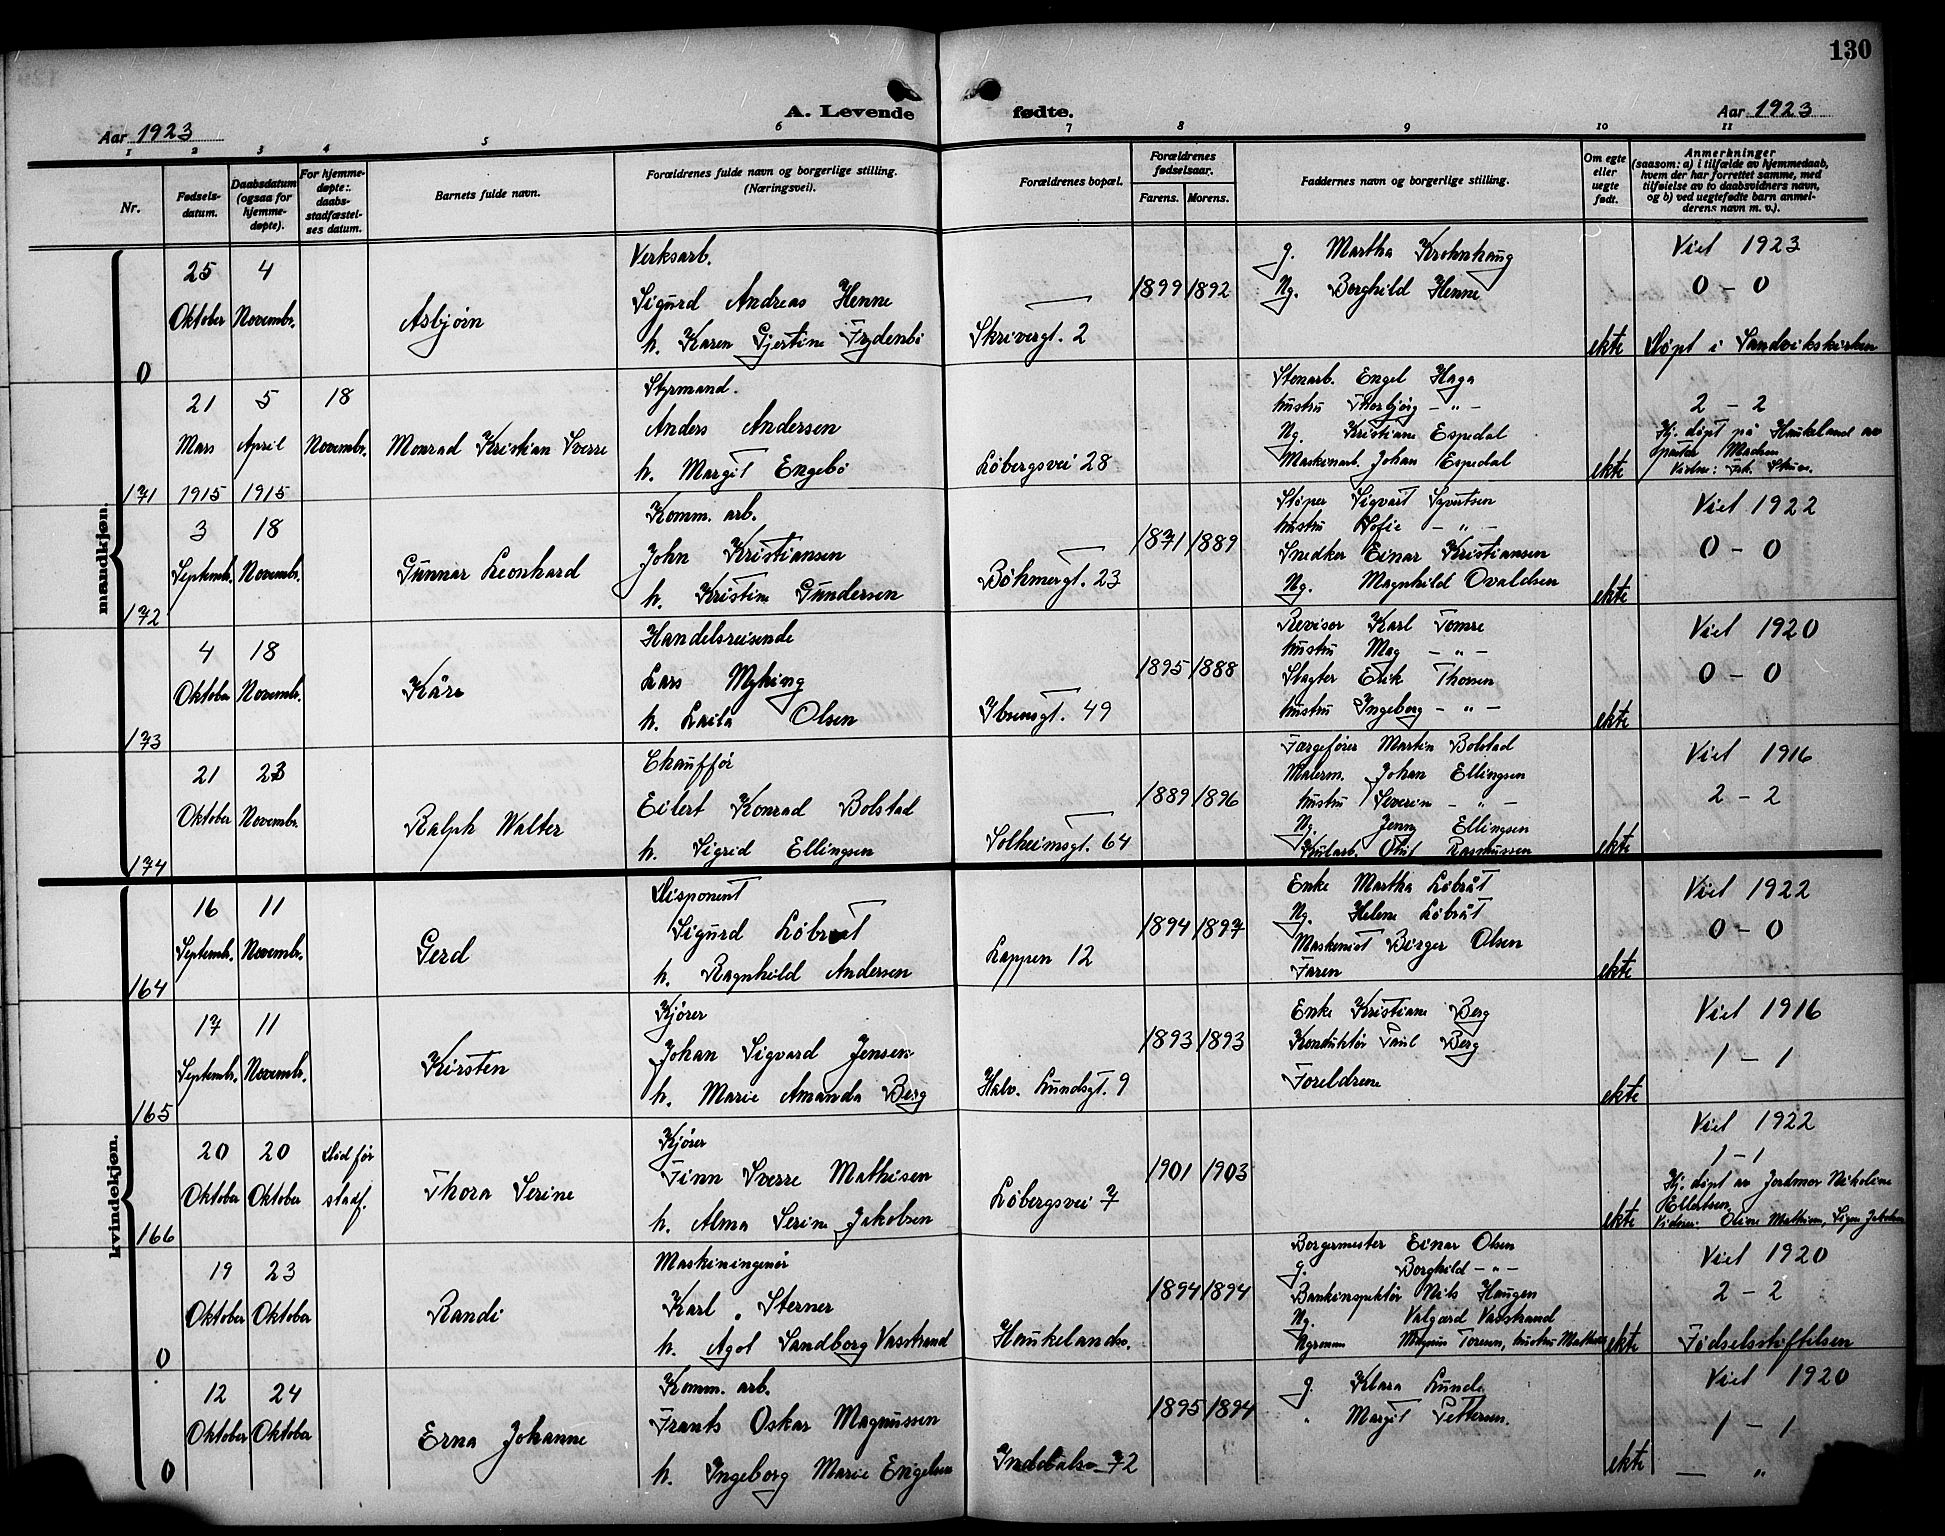 130
A. Levende fødte.
Aar 1923
Aar 1923
1 2 3 4 5 6 7 8 9 10 11
Nr.
Fødsels-
datum.
Daabsdatum
(ogsaa for
hjemme-
døpte).
For hjemme-
døpte:
daabs-
stadfæstel-
ses datum.
Barnets fulde navn.
Forældrenes fulde navn og borgerlige stilling.
(Næringsvei).
Forældrenes bopæl.
Forældrenes
fødselsaar.
Farens. Morens.
Faddernes navn og borgerlige stilling.
Om egte
eller
uegte
født.
Anmerkninger
(saasom: a) i tilfælde av hjemmedaab,
hvem der har forrettet samme, med
tilføielse av to daabsvidners navn,
og b) ved uegtefødte barn anmel-
derens navn m. v.).
mandkjøn.
0
25 Oktober
4 Novembr.
Asbjørn
Verksarb.
Sigurd Andreas Henne
h. Karen Gjertine Frydenbø
Skrivergt. 2
1899 1892
g. Martha Krohnhaug
Ng. Borghild Henne
ekte
Viet 1923
0 - 0
Døpt i Sandvikskirken
171
21 Mars 1915
5 April 1915
18 Novembr.
Monrad Kristian Sverre
Styrmand.
Anders Andersen
h. Margit Engebø
Løbergsvei 28
Stenarb. Engel Haga
hustru Thorbjørg - " -
Ng. Kristiane Espedal
Maskinarb. Johan Espedal
ekte
2 - 2
Hj. døpt på Haukeland av
Vidne:
172
3 Septembr.
18 Novembr.
Gunnar Leonhard
Komm. arb.
John Kristiansen
h. Kristine Gundersen
Bøhmergt. 23
1871 1889
Støper Sigvart Syvertsen
hustru Sofie - " -
Snedker Einar Kristiansen
Ng. Magnhild Ovaldsen
ekte
Viet 1922
0 - 0
173
4 Oktober
18 Novembr.
Kåre
Handelsreisende
Lars Myking
h. Laila Olsen
Ibsensgt. 49
1895 1888
Revisor Karl Tomre
hustru Mag - " -
Slagter Erik Thorsen
hustru Ingeborg - " -
ekte
Viet 1920
0 - 0
174
21 Oktober
23 Novembr.
Ralph Walter
Chauffør
Eilert Konrad Bolstad
h. Sigrid Ellingsen
Solheimsgt. 64
1889 1896
Færgefører Martin Bolstad
Malerm. Johan Ellingsen
hustru Severin - " -
Ng. Jenny Ellingsen
Kularb. Olut Rasmussen
ekte
Viet 1916
2 - 2
kvindekjøn.
164
16 Septembr.
11 Novembr.
Gerd
Disponent
Sigurd Løbråt
h. Ragnhild Andersen
Lappen 12
1894 1897
Enke Martha Løbråt
Ng. Helene Løbråt
Maskinist Birger Olsen
Faren
ekte
Viet 1922
0 - 0
165
17 Septembr.
11 Novembr.
Kirsten
Kjører
Johan Sigvard Jensen
h. Marie Amanda Berg
Halv. Lundsgt. 9
1893 1893
Enke Kristiane Berg
Konduktør Paul Berg
Foreldrene
ekte
Viet 1916
1 - 1
166
20 Oktober
20 Oktober
Død før
stadf.
Thora Serine
Kjører
Finn Sverre Mathisen
h. Alma Serine Jakobsen
Løbergsvei 7
1901 1903
ekte
Viet 1922
1 - 1
Hj. døpt av Jordmor Nikoline
Ellertsen.
Vidner: Oline Mathisen, Signe Jakobsen
0
19 Oktober
23 Oktober
Randi
Maskiningeniør
Karl Sterner
h. Ågot Sandborg Vasstrand
Haukelands.
1894 1894
Borgermester Einar Olsen
g. Borghild - " -
Bankinspektør Nils Haugen
Ng. Valgard Vasstrand
ekte
Viet 1920
2 - 2
Fødselsstiftelsen
0
12 Oktober
24 Oktober
Erna Johanne
Komm. arb.
Frants Oskar Magnussen
h. Ingeborg Marie Engelsen
72
1895 1894
g. Klara Lunde
" Margit Pettersen.
ekte
Viet 1920
1 - 1
— "